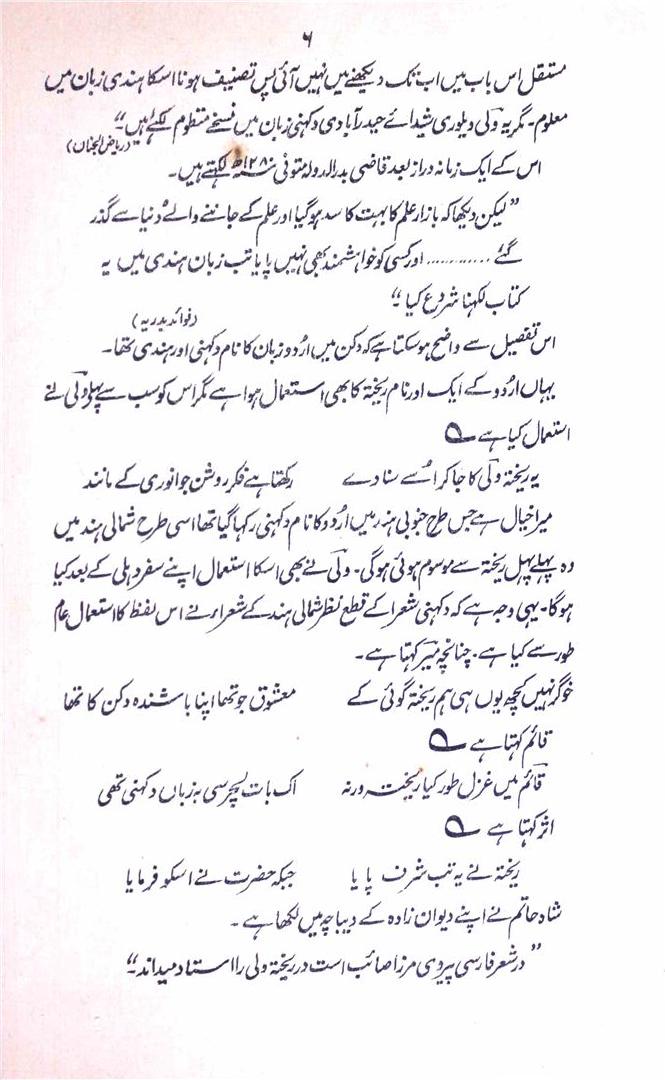 ۶
مستقل اس باب میں اب تک دیکھنے میں نہیں آئی پس تصنیف ہونا اسکا ہندی زبان میں
معلوم۔ مگر یہ ولی ویلوری شیدائے حیدرآبادی دکہنی زبان میں نسخے منظوم لکھے ہیں“
(ریاض الجنان)
اس کے ایک زمانہ دراز بعد قاضی بدرالدولہ متوفی ۱۲۸۰ھ لکھتے ہیں۔
”لیکن دیکھا کہ بازار علم کا بہت کاسد ہوگیا اور علم کے جاننے والے دنیا سے گذر
گئے ............ اور کسی کو خواہشمند بھی نہیں پایا تب زبان ہندی میں یہ
کتاب لکہنا شروع کیا“
(فوائد بدریہ)
اس تفصیل سے واضح ہوسکتا ہے کہ دکن میں اردو زبان کا نام دکہنی اور ہندی تھا۔
یہاں اردو کے ایک اور نام ریختہ کا بھی استعمال ہوا ہے مگر اس کو سب سے پہلے ولی نے
استعمال کیا ہے ؎
یہ ریختہ ولی کا جا کر اسے سنا دے رکھتا ہے فکر روشن جو انوری کے مانند
میرا خیال ہے جس طرح جنوبی ہند میں اردو کا نام دکہنی رکہا گیا تھا اسی طرح شمالی ہند میں
وہ پہلے پہل ریختہ سے موسوم ہوئی ہوگی۔ ولی نے بھی اسکا استعمال اپنے سفر دہلی کے بعد کیا
ہوگا۔ یہی وجہ ہے کہ دکہنی شعرا کے قطع نظر شمالی ہند کے شعراء نے اس لفظ کا استعمال عام
طور سے کیا ہے۔ چنانچہ میر کہتا ہے۔
خوگر نہیں کچھ یوں ہی ہم ریختہ گوئی کے معشوق جو تھا اپنا باشندہ دکن کا تھا
قائم کہتا ہے ؎
قائم میں غزل طور کیا ریختہ ورنہ اک بات لچر سی بہ زباں دکہنی تھی
اثر کہتا ہے ؎
ریختہ نے یہ تب شرف پایا جبکہ حضرت نے اسکو فرمایا
شاہ حاتم نے اپنے دیوان زادہ کے دیباچہ میں لکھا ہے۔
”در شعر فارسی پیروی مرزا صائب است در ریختہ ولی را استاد میداند۔“